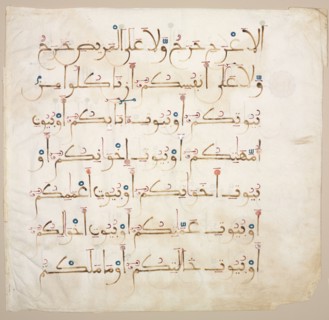 الَاعْرَجِ حَرَجٌ وَلَا عَلَى الْمَرِيضِ حَرَجٌ
وَلَا عَلَى أَنفُسِكُمْ أَن تَاكُلُوا مِن
بُيُوتِكُمْ أَوْ بُيُوتِ ءَابَائِكُمْ أَوْ بُيُوتِ
أُمَّهَٰتِكُمْ أَوْ بُيُوتِ إِخْوَانِكُمْ أَوْ
بُيُوتِ أَخَوَاتِكُمْ أَوْ بُيُوتِ أَعْمَٰمِكُمْ
أَوْ بُيُوتِ عَمَّٰتِكُمْ أَوْ بُيُوتِ أَخْوَٰلِكُمْ
أَوْ بُيُوتِ خَٰلَٰتِكُمْ أَوْ مَا مَلَكْتُم